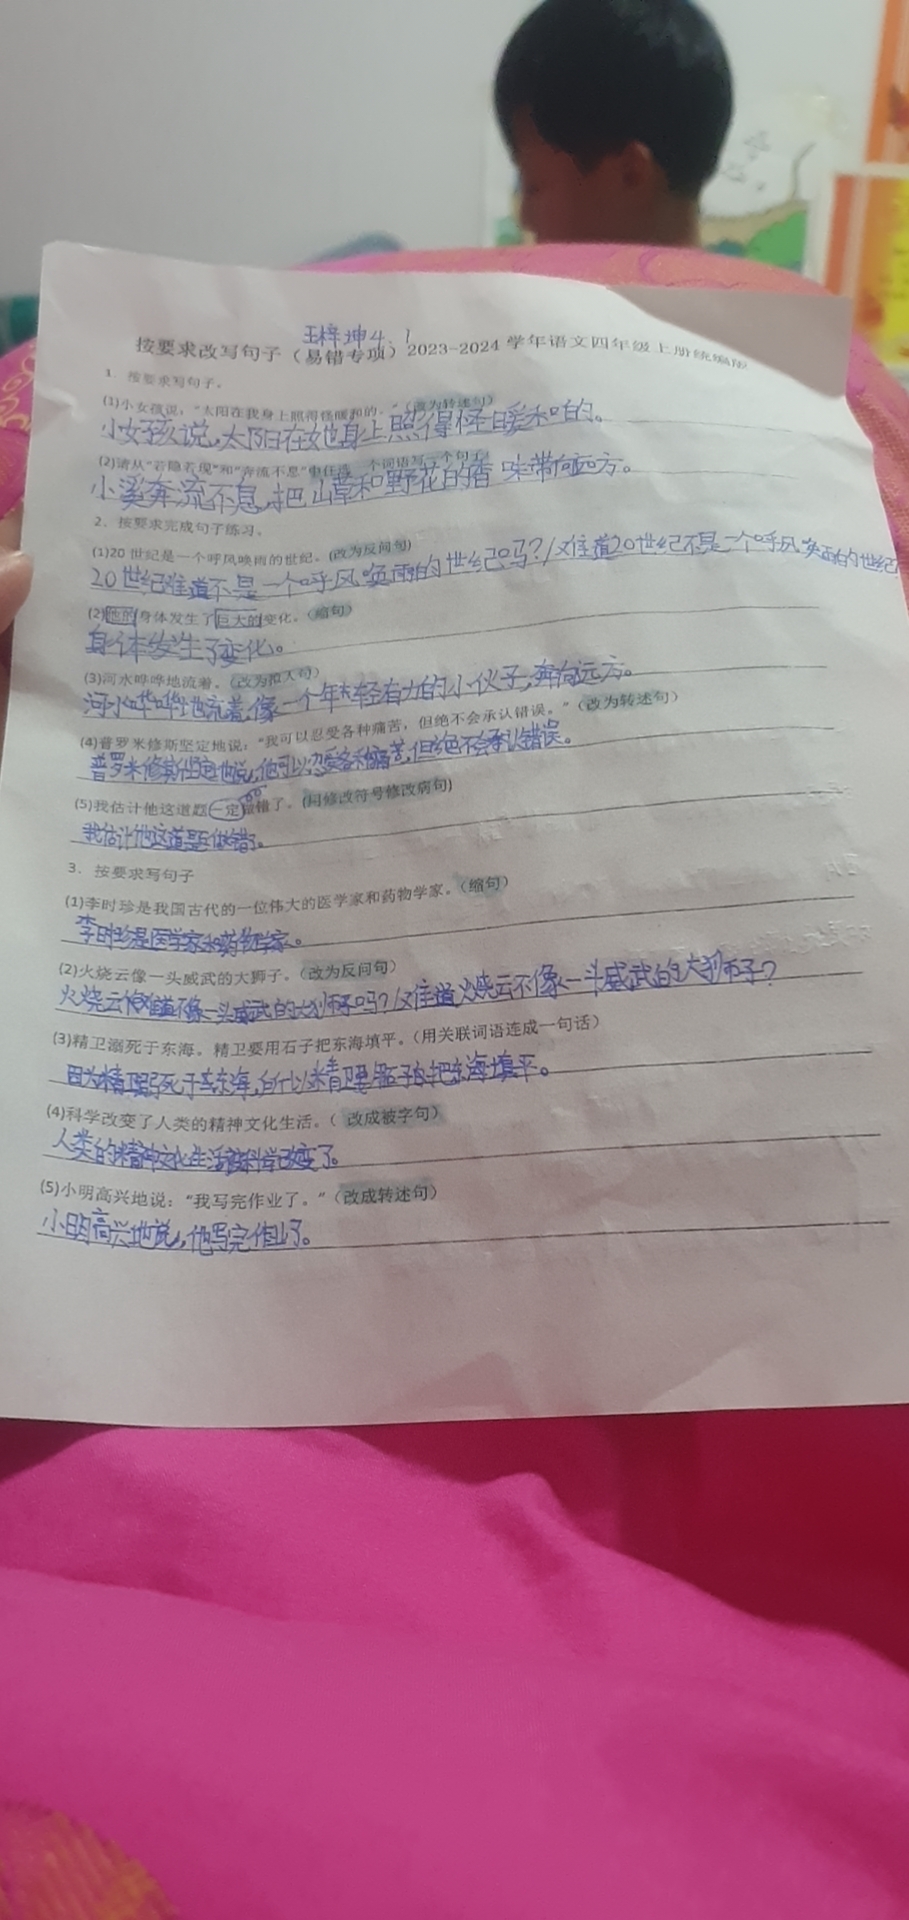 王梓坤4.1
按要求改写句子（易错专项）2023-2024学年语文四年级上册统编版
1．按要求写句子。
(1)小女孩说：“太阳在我身上照得怪暖和的。”（改为转述句）
小女孩说，太阳在她身上照得怪暖和的。
(2)请从“若隐若现”和“奔流不息”中任选一个词语写一个句子。
小溪奔流不息，把山草和野花的香味带向远方。
2．按要求完成句子练习。
(1)20世纪是一个呼风唤雨的世纪。(改为反问句)
20世纪难道不是一个呼风唤雨的世纪吗？/难道20世纪不是一个呼风唤雨的世纪
(2)他的身体发生了巨大的变化。（缩句）
身体发生了变化。
(3)河水哗哗地流着。（改为拟人句）
河水哗哗地流着，像一个年轻有力的小伙子，奔向远方。
(4)普罗米修斯坚定地说：“我可以忍受各种痛苦，但绝不会承认错误。”（改为转述句）
普罗米修斯坚定地说，他可以忍受各种痛苦，但绝不会承认错误。
(5)我估计他这道题一定做错了。(用修改符号修改病句)
我估计他这道题做错了。
3．按要求写句子
(1)李时珍是我国古代的一位伟大的医学家和药物学家。（缩句）
李时珍是医学家和药物学家。
(2)火烧云像一头威武的大狮子。（改为反问句）
火烧云难道不像一头威武的大狮子吗？/难道火烧云不像一头威武的大狮子？
(3)精卫溺死于东海。精卫要用石子把东海填平。（用关联词语连成一句话）
因为精卫溺死于东海，所以精卫要用石子把东海填平。
(4)科学改变了人类的精神文化生活。（改成被字句）
人类的精神文化生活被科学改变了。
(5)小明高兴地说：“我写完作业了。”（改成转述句）
小明高兴地说，他写完作业了。